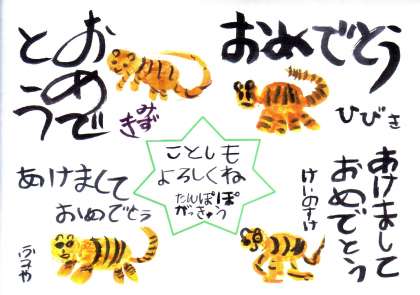 おめで
とう
みずき
おめでとう
ひびき
あけまして
おめでとう
ふみや
ことしも
よろしくね
たんぽぽ
がっきゅう
あけまして
おめでとう
けいのすけ